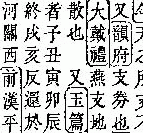 又韻府支券也
大戴禮燕支地
散也又玉篇
者子丑寅卯辰
終亥還於
河關西前漢平